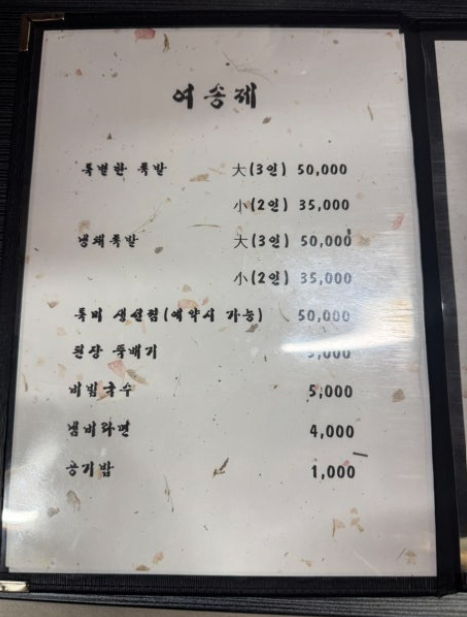 여송제
특별한 족발 大(3인) 50,000
小(2인) 35,000
냉채족발 大(3인) 50,000
小(2인) 35,000
특미 생선찜(예약시 가능) 50,000
된장 뚝배기
비빔국수 5,000
냄비라면 4,000
공기밥 1,000